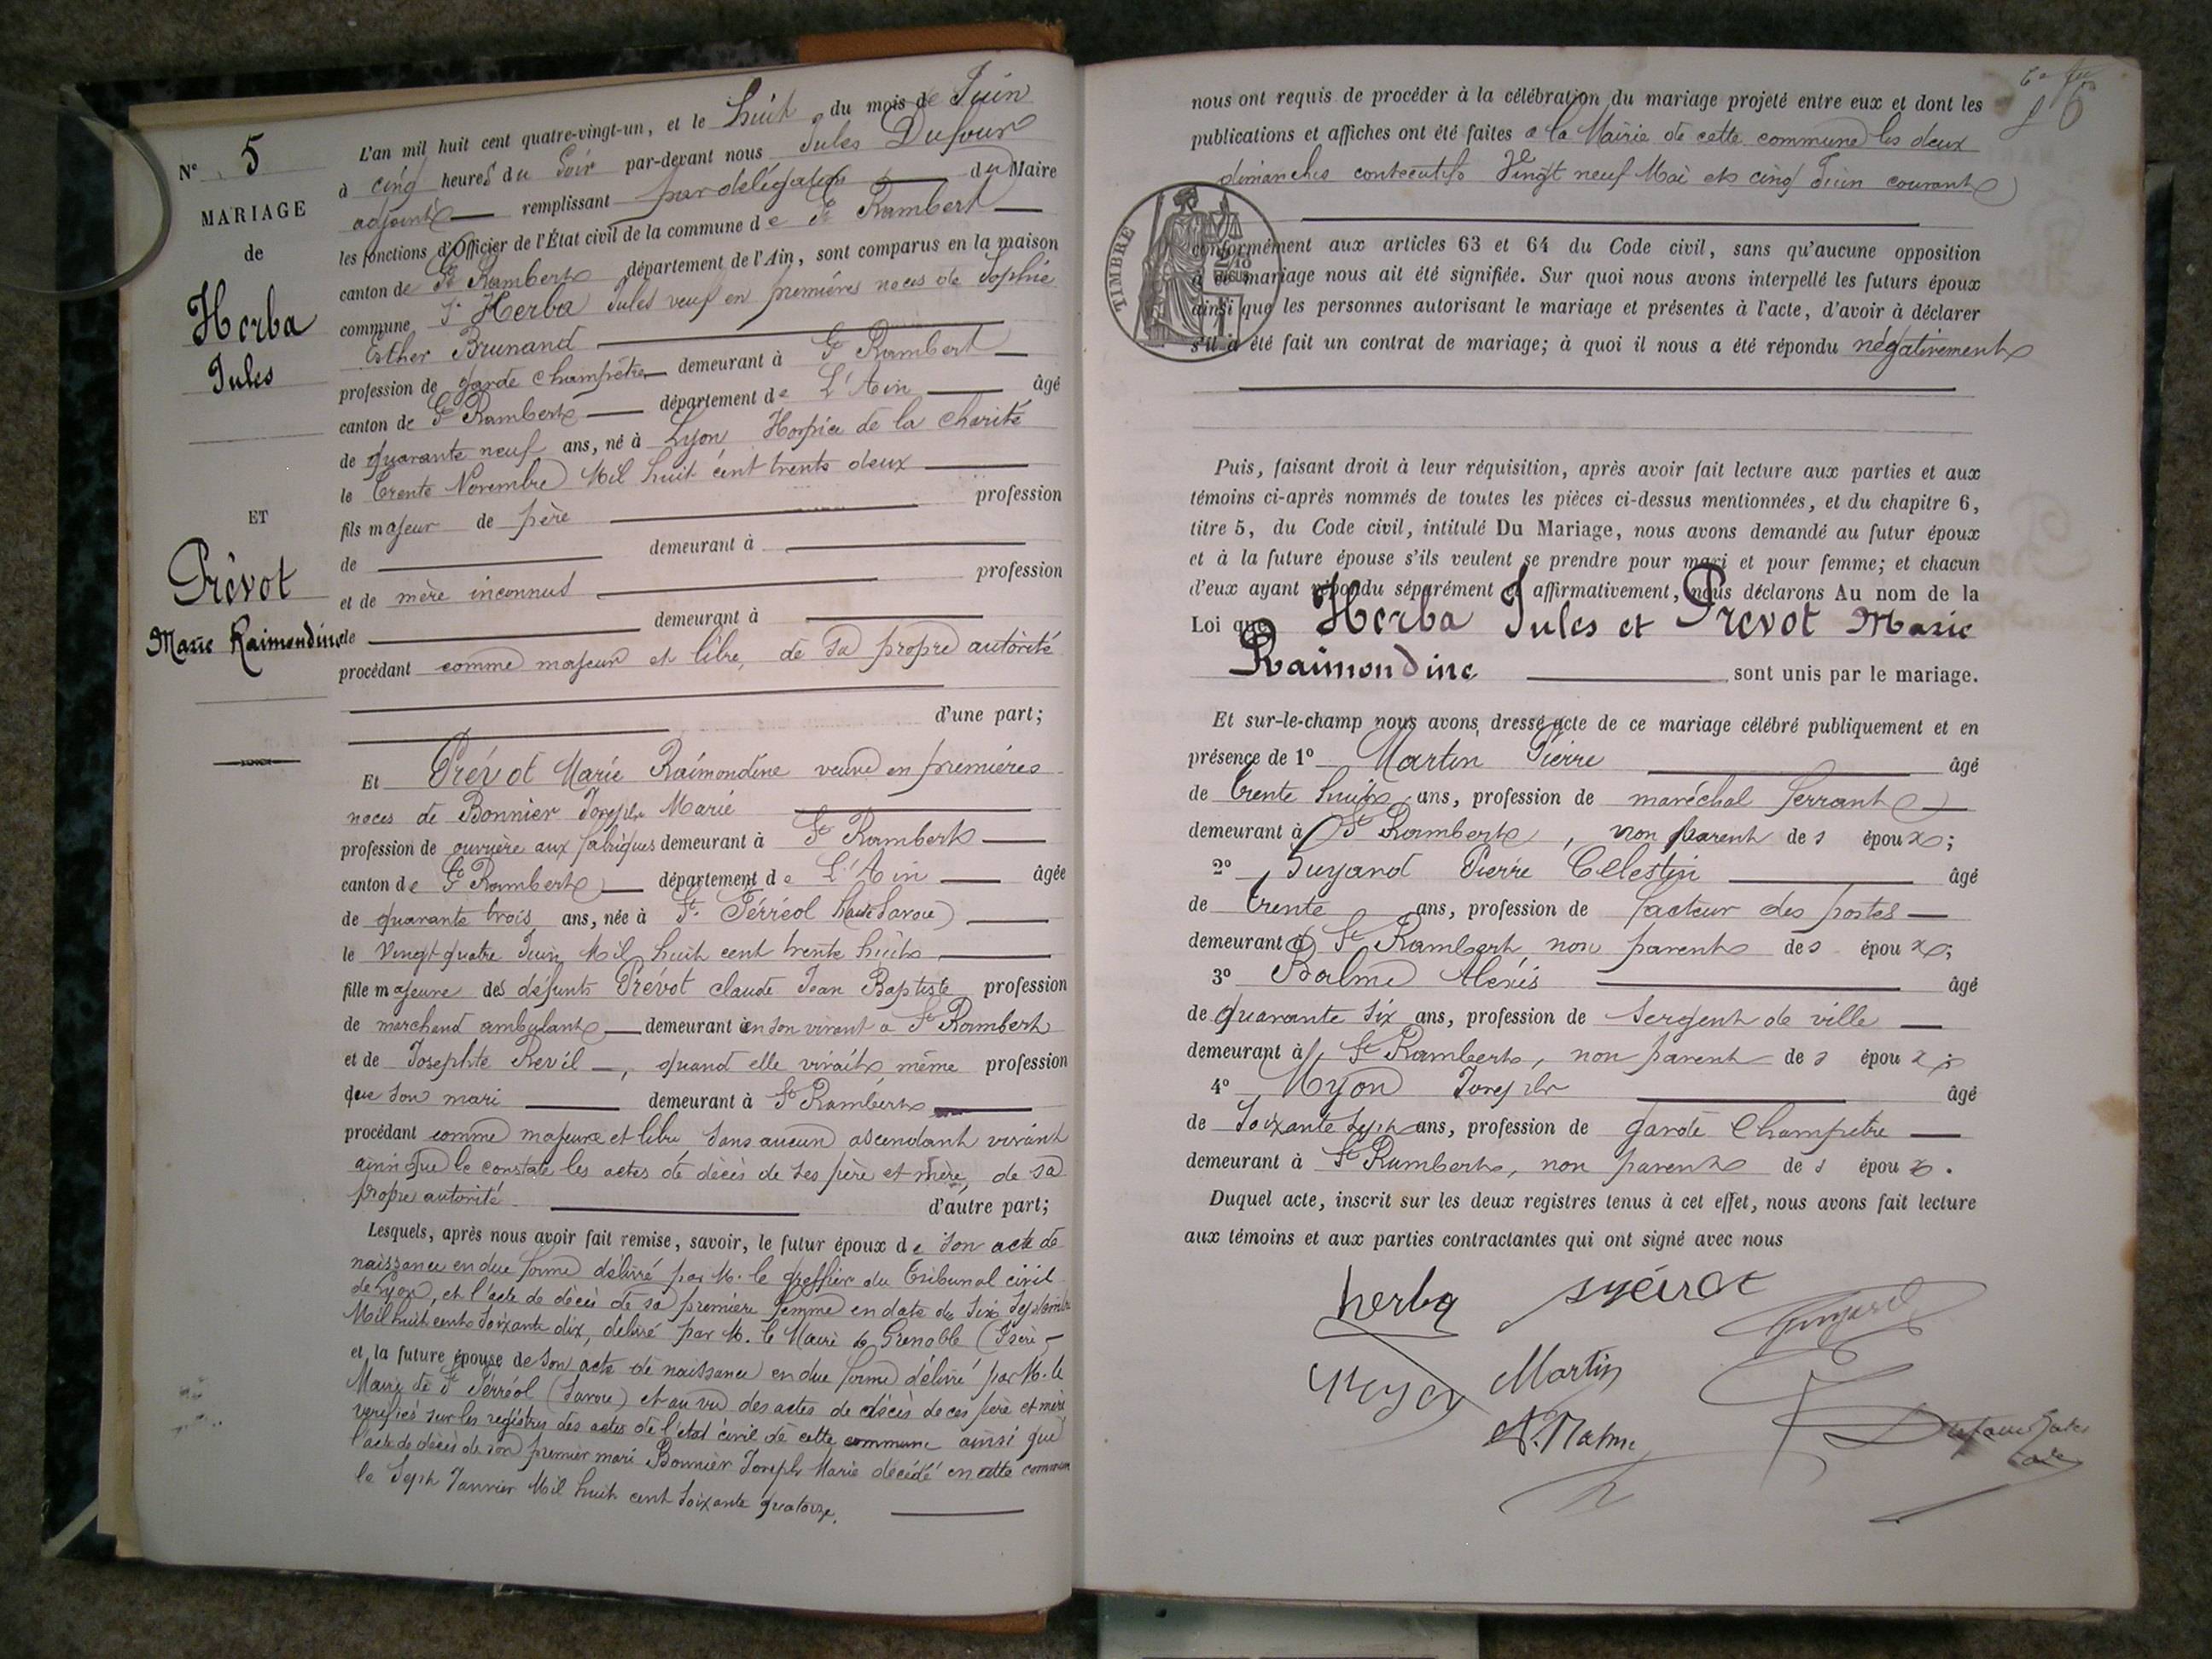 N° 5
MARIAGE
de
Herba
Jules
ET
Prévot
Marie Raimondine
L'an mil huit cent quatre-vingt-un, et le huit du mois de Juin
à cinq heures du Soir par-devant nous Jules Dufour
adjoint remplissant par délégation du Maire
les fonctions d'Officier de l'État civil de la commune de St Rambert
canton de St Rambert département de l'Ain, sont comparus en la maison
commune Sr Herba Jules veuf en premières noces de Sophie
Esther Brunand
profession de garde champêtre demeurant à St Rambert
canton de St Rambert département de L'Ain âgé
de quarante neuf ans, né à Lyon Hospice de la Charité
le trente Novembre Mil huit cent trente deux
fils majeur de père profession
de demeurant à
et de mère inconnus profession
de demeurant à
procédant comme majeur et libre, de sa propre autorité
d'une part;
Et Prévot Marie Raimondine veuve en premières
noces de Bonnier Joseph Marie
profession de ouvrière aux fabriques demeurant à St Rambert
canton de St Rambert département de L'Ain âgée
de quarante trois ans, née à St Férréol (haute Savoie)
le Vingt quatre Juin Mil huit cent trente huit
fille majeure des défunts Prévot claude Jean Baptiste profession
de marchand ambulant demeurant en son vivant a St Rambert
et de Josephte Revil, quand elle vivait, même profession
que son mari demeurant à St Rambert
procédant comme majeure et libre sans aucun ascendant vivant
ainsi que le constate les actes de décès de ses père et mère, de sa
propre autorité d'autre part;
Lesquels, après nous avoir fait remise, savoir, le futur époux de son acte de
naissance en due forme délivré par M. le greffier du Tribunal civil
de Lyon, et l'acte de décès de sa première femme en date du Six Septembre
Mil huit cent Soixante dix, délivré par M. le Maire de Grenoble (Isère)
et la future épouse de son acte de naissance en due forme délivré par M. le
Maire de St Férréol (Savoie) et au vu des actes de décès de ces père et mère
verifiés sur les registres des actes de l'etat civil de cette commune ainsi que
l'acte de décès de son premier mari Bonnier Joseph Marie décédé en cette commune
le Sept Janvier Mil huit cent Soixante quatorze.
nous ont requis de procéder à la célébration du mariage projeté entre eux et dont les
publications et affiches ont été faites a la Mairie de cette commune les deux
dimanches consecutifs Vingt neuf Mai et cinq Juin courant
TIMBRE
conformément aux articles 63 et 64 du Code civil, sans qu'aucune opposition
à ce mariage nous ait été signifiée. Sur quoi nous avons interpellé les futurs époux
ainsi que les personnes autorisant le mariage et présentes à l'acte, d'avoir à déclarer
s'il a été fait un contrat de mariage; à quoi il nous a été répondu négativement
Puis, faisant droit à leur réquisition, après avoir fait lecture aux parties et aux
témoins ci-après nommés de toutes les pièces ci-dessus mentionnées, et du chapitre 6,
titre 5, du Code civil, intitulé Du Mariage, nous avons demandé au futur époux
et à la future épouse s'ils veulent se prendre pour mari et pour femme; et chacun
d'eux ayant répondu séparément et affirmativement, nous déclarons Au nom de la
Loi que Herba Jules et Prevot Marie
Raimondine sont unis par le mariage.
Et sur-le-champ nous avons dressé acte de ce mariage célébré publiquement et en
présence de 1° Martin Pierre âgé
de trente huit ans, profession de maréchal ferrant
demeurant à St Rambert, non parent des époux;
2° Guyand Pierre Célestin âgé
de trente ans, profession de facteur des postes
demeurant à St Rambert non parent des époux;
3° Balme Alexis âgé
de quarante Six ans, profession de Sergent de ville
demeurant à St Rambert, non parent des époux;
4° Myon Joseph âgé
de Soixante Sept ans, profession de garde Champetre
demeurant à St Rambert, non parent des époux.
Duquel acte, inscrit sur les deux registres tenus à cet effet, nous avons fait lecture
aux témoins et aux parties contractantes qui ont signé avec nous
herba
Martin